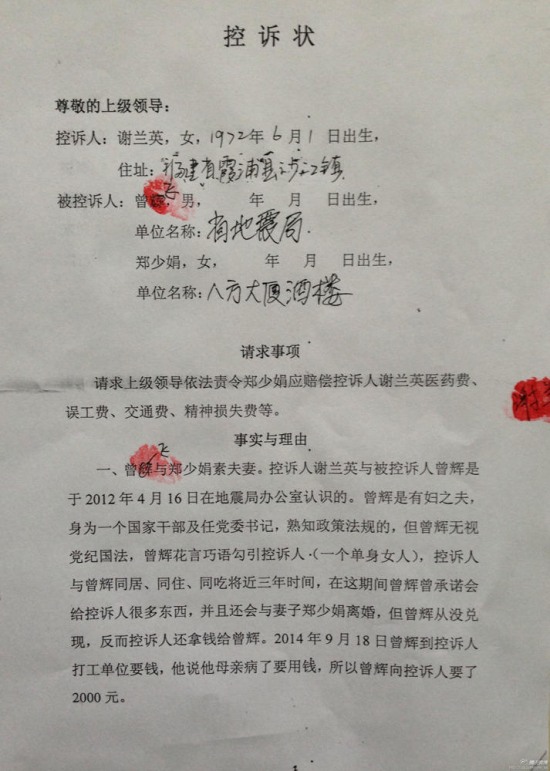 控诉状
尊敬的上级领导：
控诉人：谢兰英，女，1972年6月1日出生，
住址：福建省霞浦县沙江镇
被控诉人：曾飞，男，　年　月　日出生，
单位名称：省地震局.
郑少娟，女，　年　月　日出生，
单位名称：八方大厦酒楼
请求事项
请求上级领导依法责令郑少娟应赔偿控诉人谢兰英医药费、
误工费、交通费、精神损失费等。
事实与理由
一、曾飞与郑少娟素夫妻。控诉人谢兰英与被控诉人曾辉是
于2012年4月16日在地震局办公室认识的。曾辉是有妇之夫，
身为一个国家干部及任党委书记，熟知政策法规的，但曾辉无视
党纪国法，曾辉花言巧语勾引控诉人·（一个单身女人），控诉人
与曾辉同居、同住、同吃将近三年时间，在这期间曾辉曾承诺会
给控诉人很多东西，并且还会与妻子郑少娟离婚，但曾辉从没兑
现，反而控诉人还拿钱给曾辉。2014年9月18日曾辉到控诉人
打工单位要钱，他说他母亲病了要用钱，所以曾辉向控诉人要了
2000元。